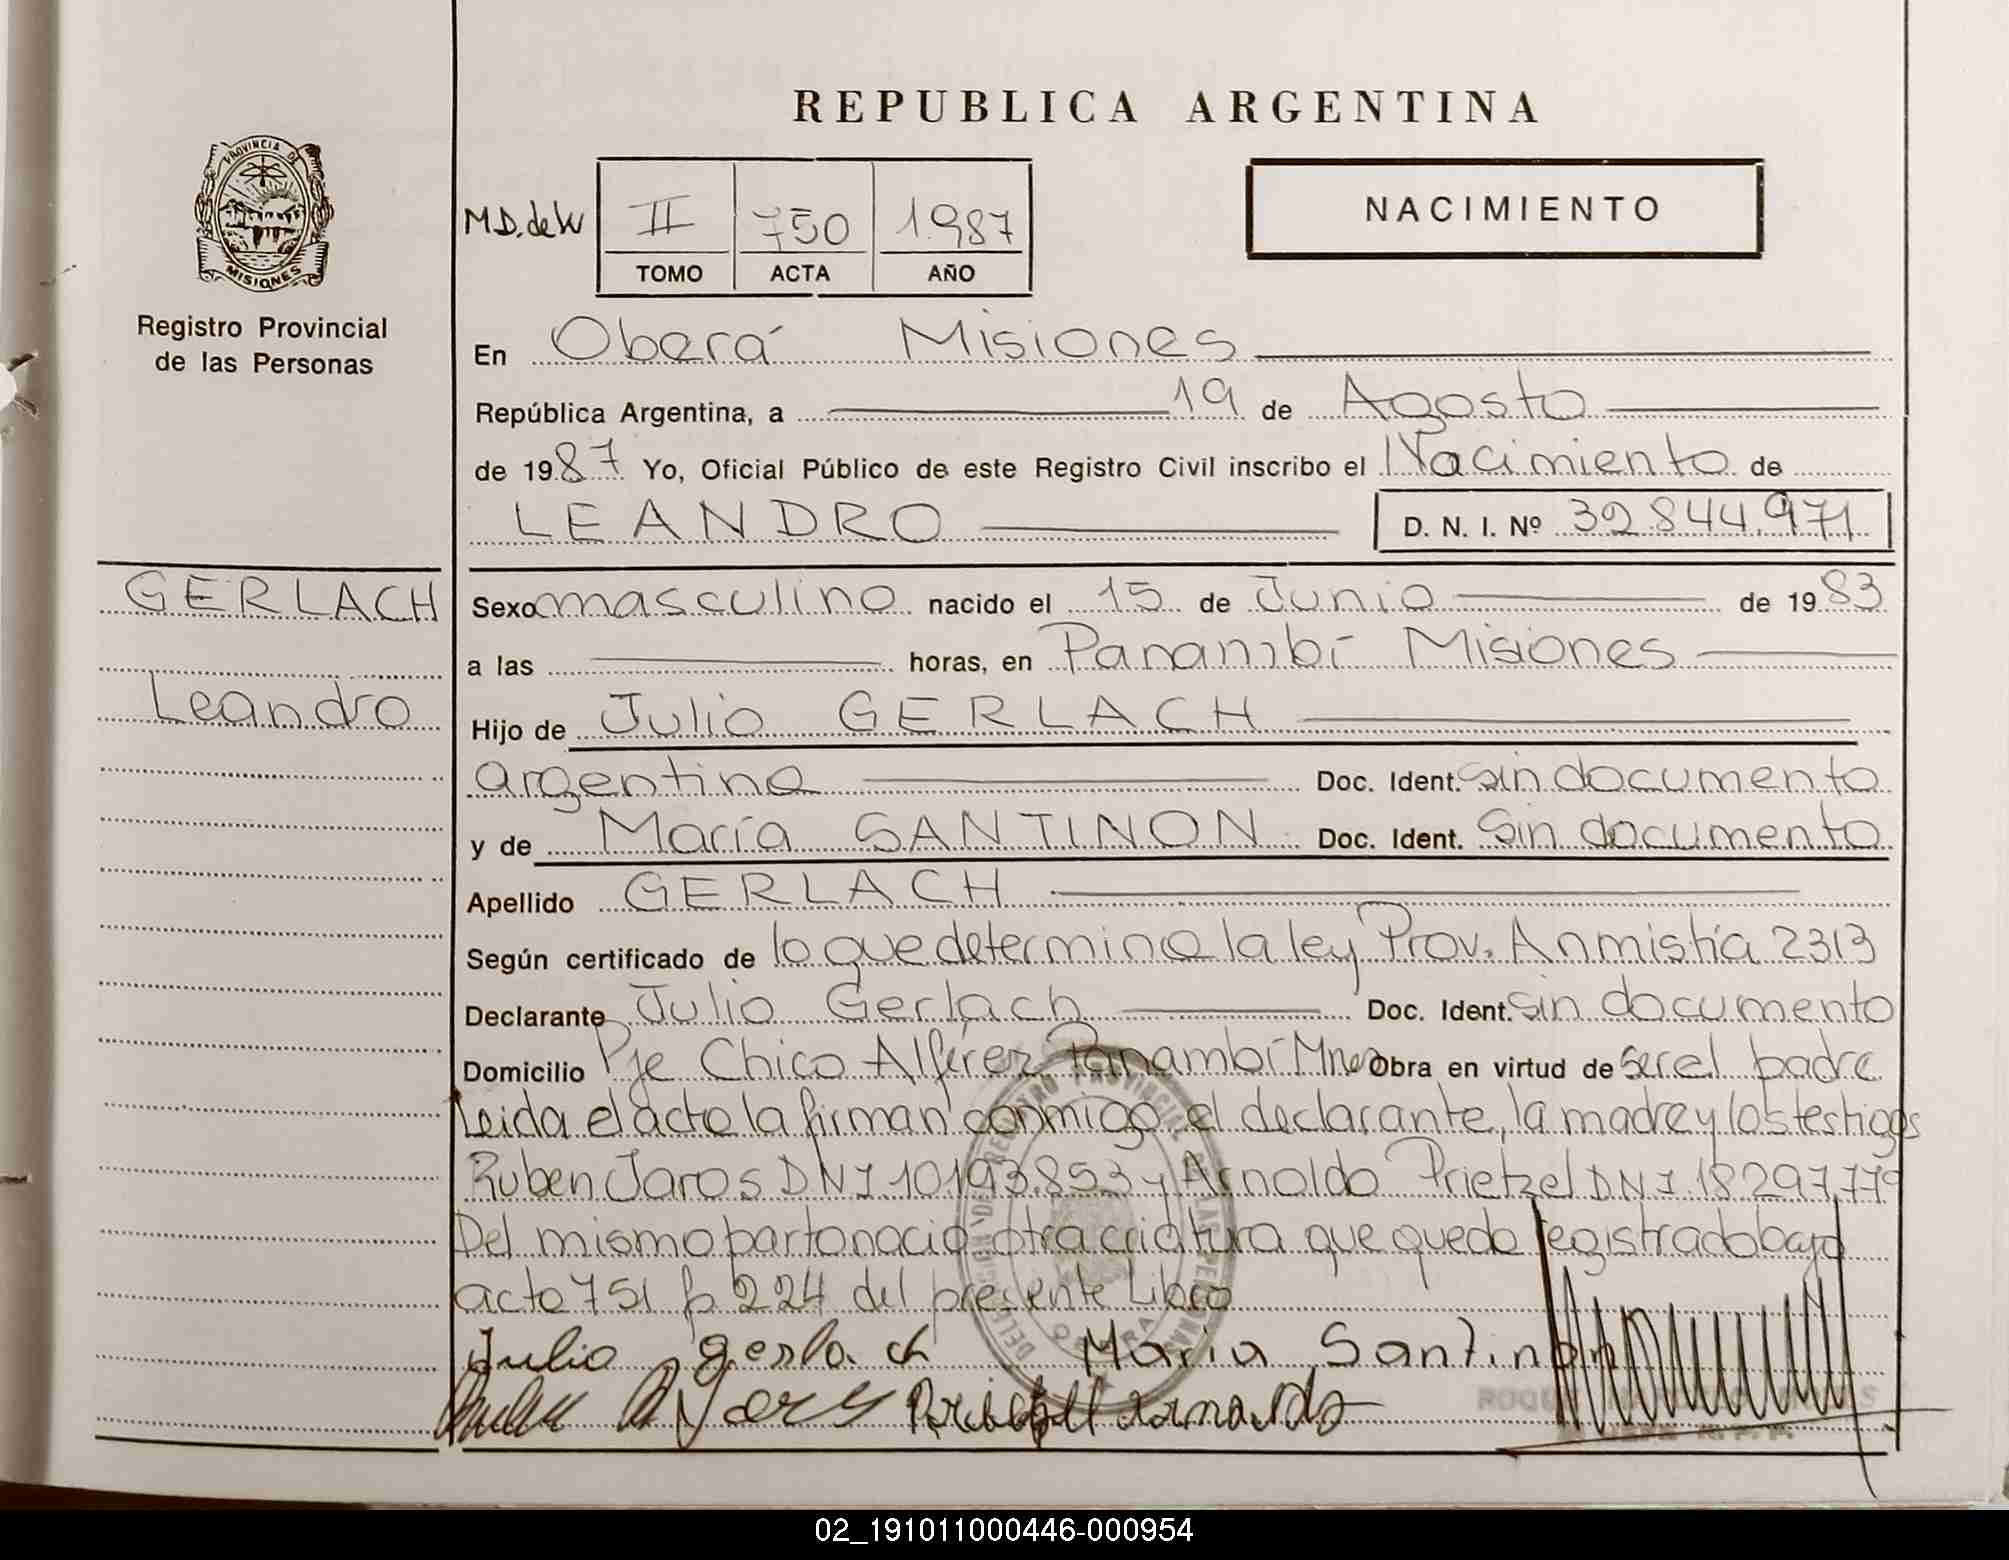 REPUBLICA ARGENTINA
PROVINCIA DE
MISIONES
Registro Provincial
de las Personas
M.D. de W
II 750 1987
TOMO ACTA AÑO
NACIMIENTO
En Oberá Misiones
República Argentina, a 19 de Agosto
de 1987 Yo, Oficial Público de este Registro Civil inscribo el Nacimiento de
LEANDRO D. N. I. Nº 32.844.971
GERLACH
Leandro
Sexo masculino nacido el 15 de Junio de 1983
a las horas, en Panambí Misiones
Hijo de Julio GERLACH
argentino Doc. Ident. Sin documento
y de María SANTINON Doc. Ident. Sin documento
Apellido GERLACH
Según certificado de lo que determina la ley Prov. Anmistía 2313
Declarante Julio Gerlach Doc. Ident. Sin documento
Domicilio Pje Chico Alférez Panambí Mnes Obra en virtud de Ser el padre
Leida el acta la firman conmigo el declarante, la madre y los testigos
Ruben Jaros DNI 10.193.853 y Arnoldo Prietzel DNI 18.297.779
Del mismo parto nació otra criatura que queda registrado bajo
acta 751 fº 224 del presente Libro
Julio gerlach Maria Santinon
02_191011000446-000954